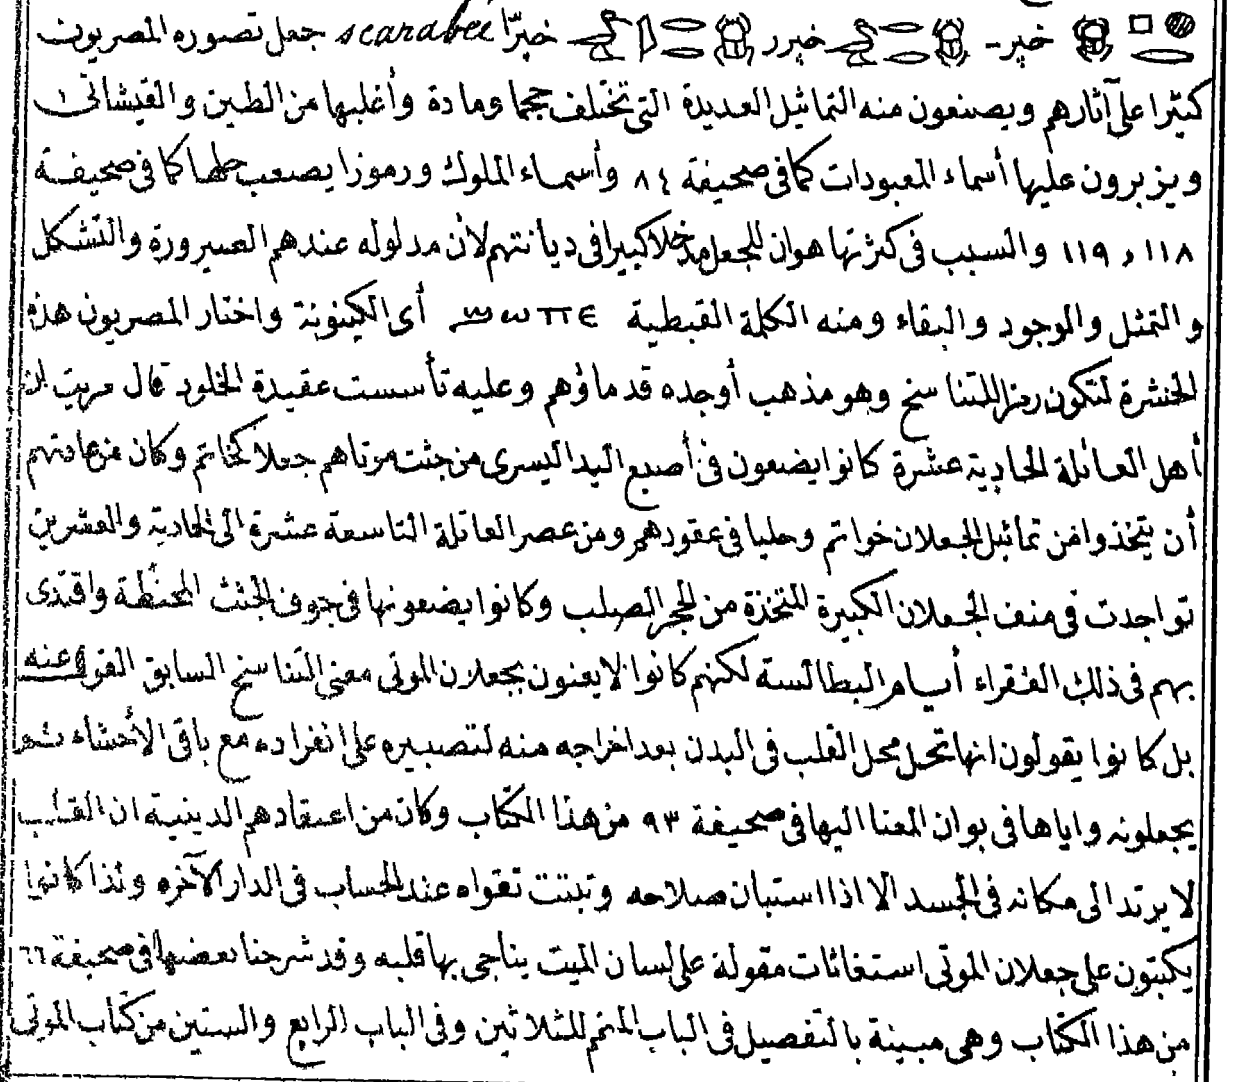 خپر - خپرر خپرّا scarabeé جعل تصوره المصريون
كثيرا على آثارهم ويصنعون منه التماثيل العديدة التى تختلف حجما ومادة وأغلبها من الطين والقيشانى
ويزبرون عليها أسماء المعبودات كما فى صحيفة ٨٤ وأسماء الملوك ورموزا يصعب حلها كما فى صحيفة
١١٨ و ١١٩ والسبب فى كثرتها هو ان للجعل مدخلا كبيرا فى ديانتهم لأن مدلوله عندهم الصيرورة والتشكل
والتمثل والوجود والبقاء ومنه الكلمة القبطية أى الكينونة واختار المصريون هذه
الحنشرة لتكون رمزا للتناسخ وهو مذهب أوجده قدماؤهم وعليه تأسست عقيدة الخلود قال مريت ان
أهل العائلة الحادية عشرة كانوا يضعون فى أصبع اليد اليسرى من جثت موتاهم جعلا كخاتم وكان من عادتهم
أن يتخذوا من تماثيل الجعلان خواتم وحليا فى عقودهم ومن عصر العائلة التاسعة عشرة الى الحادية والعشرين
تواجدت فى منف الجعلان الكبيرة المتخذة من الحجر الصلب وكانوا يضعونها فى جوف الجثث المحنطة واقتدى
بهم فى ذلك الفقراء أيام البطالسة لكنهم كانوا لا يعنون بجعلان الموتى معنى التناسخ السابق القول عنه
بل كانوا يقولون انها تحل محل القلب فى البدن بعد اخراجه منه لتصبيره على انفراده مع باقى الأحشاء ثم
يجعلونه واياها فى بوان المعنا اليها فى صحيفة ٩٣ من هذا الكتاب وكان من اعتقادهم الدينية ان القلب
لا يرتد الى مكانه فى الجسد الا اذا استبان صلاحه وثبتت تقواه عند الحساب فى الدار الآخرة ولذا كانوا
يكتبون على جعلان الموتى استغاثات مقولة على لسان الميت يناجى بها قلبه وقد شرحنا بعضها فى صحيفة ٦٦
من هذا الكتاب وهى مبينة بالتفصيل فى الباب المتمم للثلاثين وفى الباب الرابع والستين من كتاب الموتى